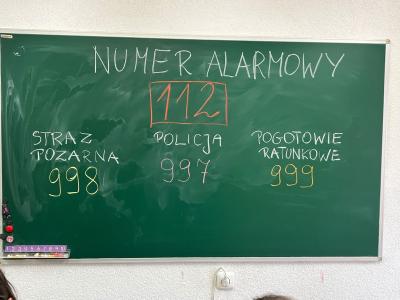 NUMER ALARMOWY
112
STRAZ
POZARNA
998
POLICJA
997
POGOTOWIE
RATUNKOWE
999